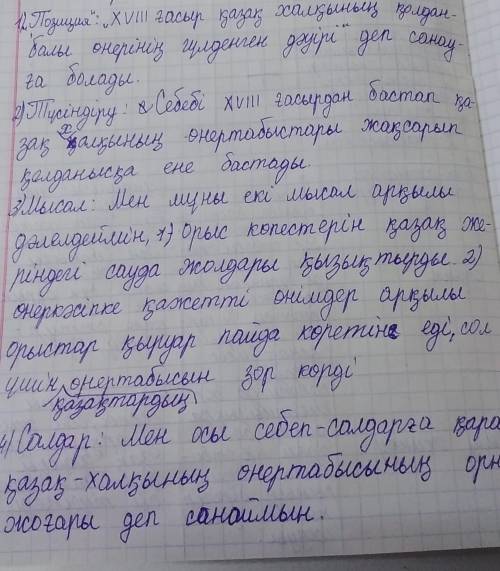 1) "Позиция": "XVIII ғасыр қазақ халқының қолдан-
балы өнерінің гүлденген дәуірі" деп санау-
ға болады.
2) Түсіндіру: Себебі XVIII ғасырдан бастап қа-
зақ халқының өнертабыстары жақсарып
қолданысқа ене бастады.
3) Мысал: Мен мұны екі мысал арқылы
дәлелдеймін, 1) Орыс көпестерін қазақ же-
ріндегі сауда жолдары қызықтырды 2)
өнеркәсіпке қажетті өнімдер арқылы
орыстар қыруар пайда көретін еді, сол
үшін қазақтардың өнертабысын зор көрді
4) Салдар: Мен осы себеп-салдарға қара
қазақ-халқының өнертабысының орн
жоғары деп санаймын.